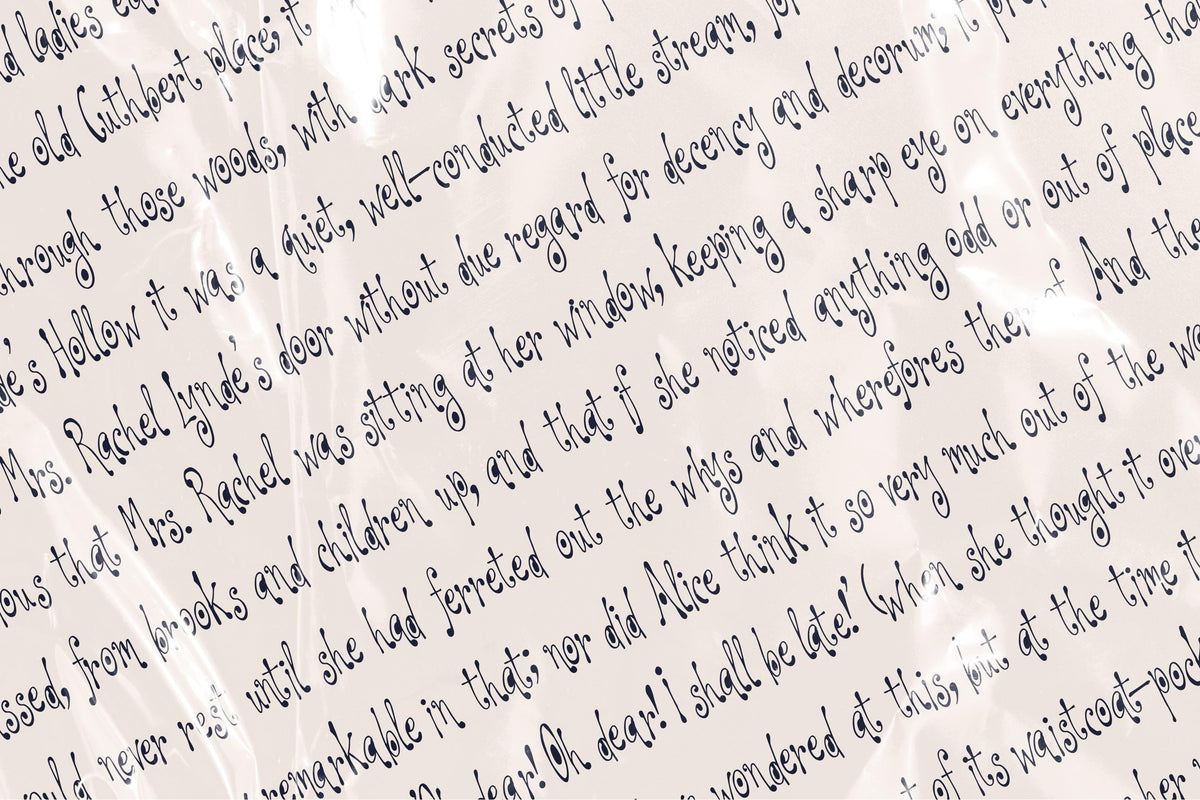 ladies
he old Cuthbert place; it
through those woods, with dark secrets of
de's Hollow it was a quiet, well-conducted little stream, for
Mrs. Rachel Lynde's door without due regard for decency and decorum; it pro
ious that Mrs. Rachel was sitting at her window, keeping a sharp eye on everything tha
assed, from brooks and children up, and that if she noticed anything odd or out of place
ould never rest until she had ferreted out the whys and wherefores thereof. And the
remarkable in that; nor did Alice think it so very much out of the wa
dear! Oh dear! I shall be late!' (when she thought it over
wondered at this, but at the time it
t of its waistcoat-pock
her